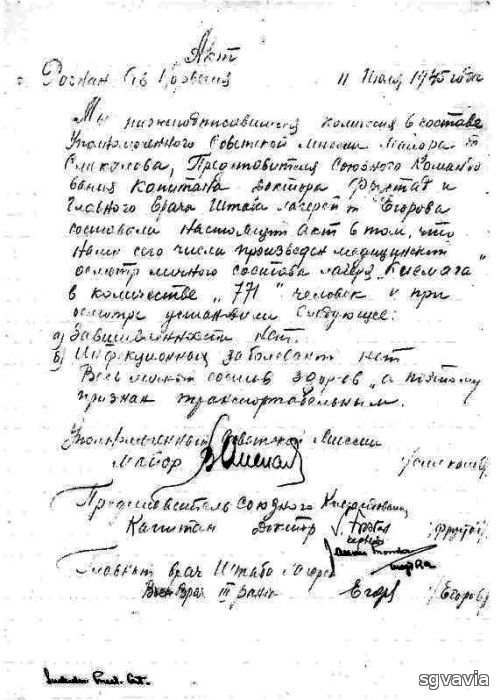 Акт
11 Июля 1945 года
Мы нижеподписавшиеся комиссия в составе
Уполномоченного Советской Миссии Майора т
Представителя Союзного Командо
вания Капитана Доктора и
Главного Врача Штаба Лагерей т Егорова
составили настоящий акт в том, что
нами сего числа произведен медицинский
осмотр личного состава лагеря
в количестве „771" человек и при
осмотре установили следующее:
а) Завшивленности нет.
б) Инфекционных заболеваний нет
Весь состав здоров, а поэтому
признан транспортабельным.
Уполномоченный Советской Миссии
Майор
Представитель Союзного Командования
Капитан Доктор
Главный врач Штаба Лагерей
Воен Врач III ранга Егор /Егоров/
sgvavia